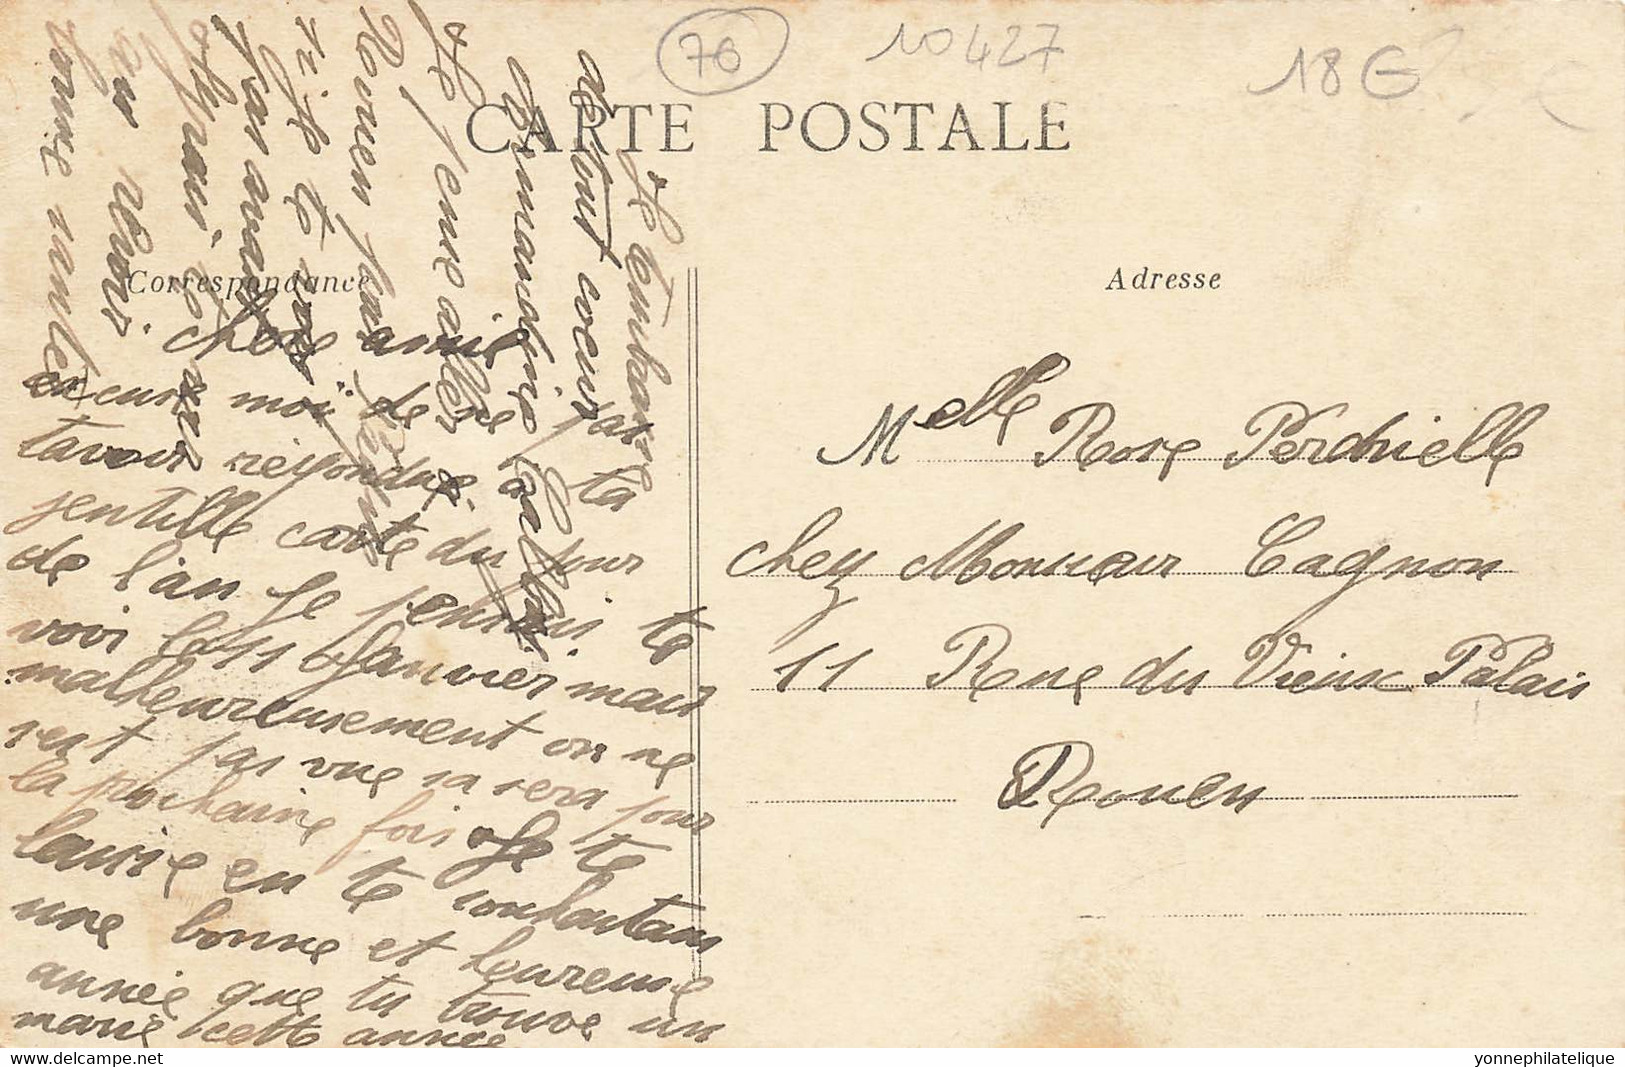 76
10427
18 €
CARTE POSTALE
Correspondance
Adresse
chere amie
excuse moi de ne pas
tavoir répondue a ta
gentille carte du jour
de l'an Je pensais te
voir le 11 Janvier mais
malheureusement on ne
sest pas vue sa sera pour
la prochaine fois Je te
laisse en te souhaitant
une bonne et heureuse
année que tu trouve un
marie cette année
Je tembrasse
de tout coeur
Je pense aller
Rouen
au revoir
bonne santée
Melle Rose Perdrielle
chez Monsieur Cagnon
11 Rue du Vieux Palais
Rouen
www.delcampe.net
yonnephilatelique